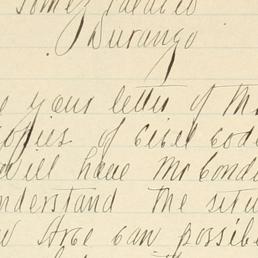 Gomez Palacio
Durango
your letter of
copies of Civil Code
will have Mr Conde
understand the situ
Arce can possible